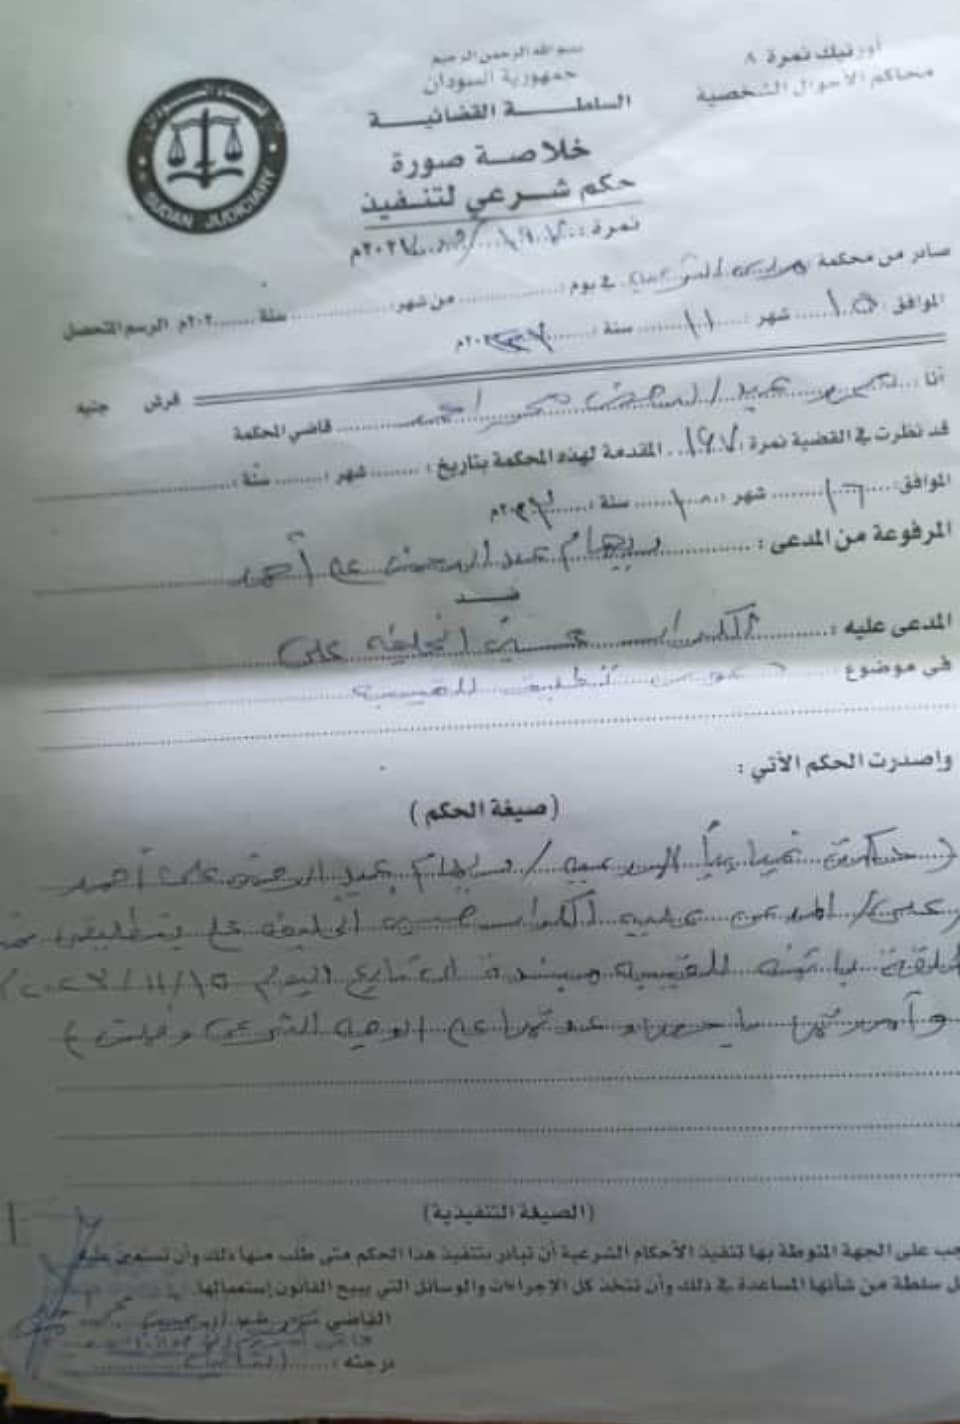 بسم الله الرحمن الرحيم
أورنيك نمرة ٨
جمهورية السودان
محاكم الأحوال الشخصية
السلطة القضائية
خلاصة صورة
حكم شرعي لتنفيذ
SUDAN JUDICIARY
نمرة :
صادر من محكمة الشرعية في يوم : من شهر : سنة ٢٠٢٠م الرسم المتحصل
الموافق : ١٥ شهر : ١١ سنة :
قرش جنيه
أنا : عبد الرحمن محمد أحمد قاضي المحكمة
قد نظرت في القضية نمرة : ١٩٧ المقدمة لهذه المحكمة بتاريخ : شهر : سنة :
الموافق : شهر : ١٠ سنة :
المرفوعة من المدعى : ريهام عبد الرحمن علي أحمد
ضد
المدعى عليه : حسين الخليفة علي
في موضوع تطليق للغيبة
واصدرت الحكم الأتي :
( صيغة الحكم )
( حكمت غيابياً للمدعية / ريهام عبد الرحمن علي أحمد
على / المدعى عليه حسين الخليفة علي بتطليقها
طلقة بائنة للغيبة مبتدة التاريخ اليوم ١٥/١١/
وأمرتها الوجه الشرعي )
(الصيغة التنفيذية)
يجب على الجهة المنوطة بها تنفيذ الأحكام الشرعية أن تبادر بتنفيذ هذا الحكم متى طلب منها ذلك وأن تسمى عليه
كل سلطة من شأنها المساعدة في ذلك وأن تتخذ كل الإجراءات والوسائل التي يبيح القانون إستعمالها.
القاضي
درجته :